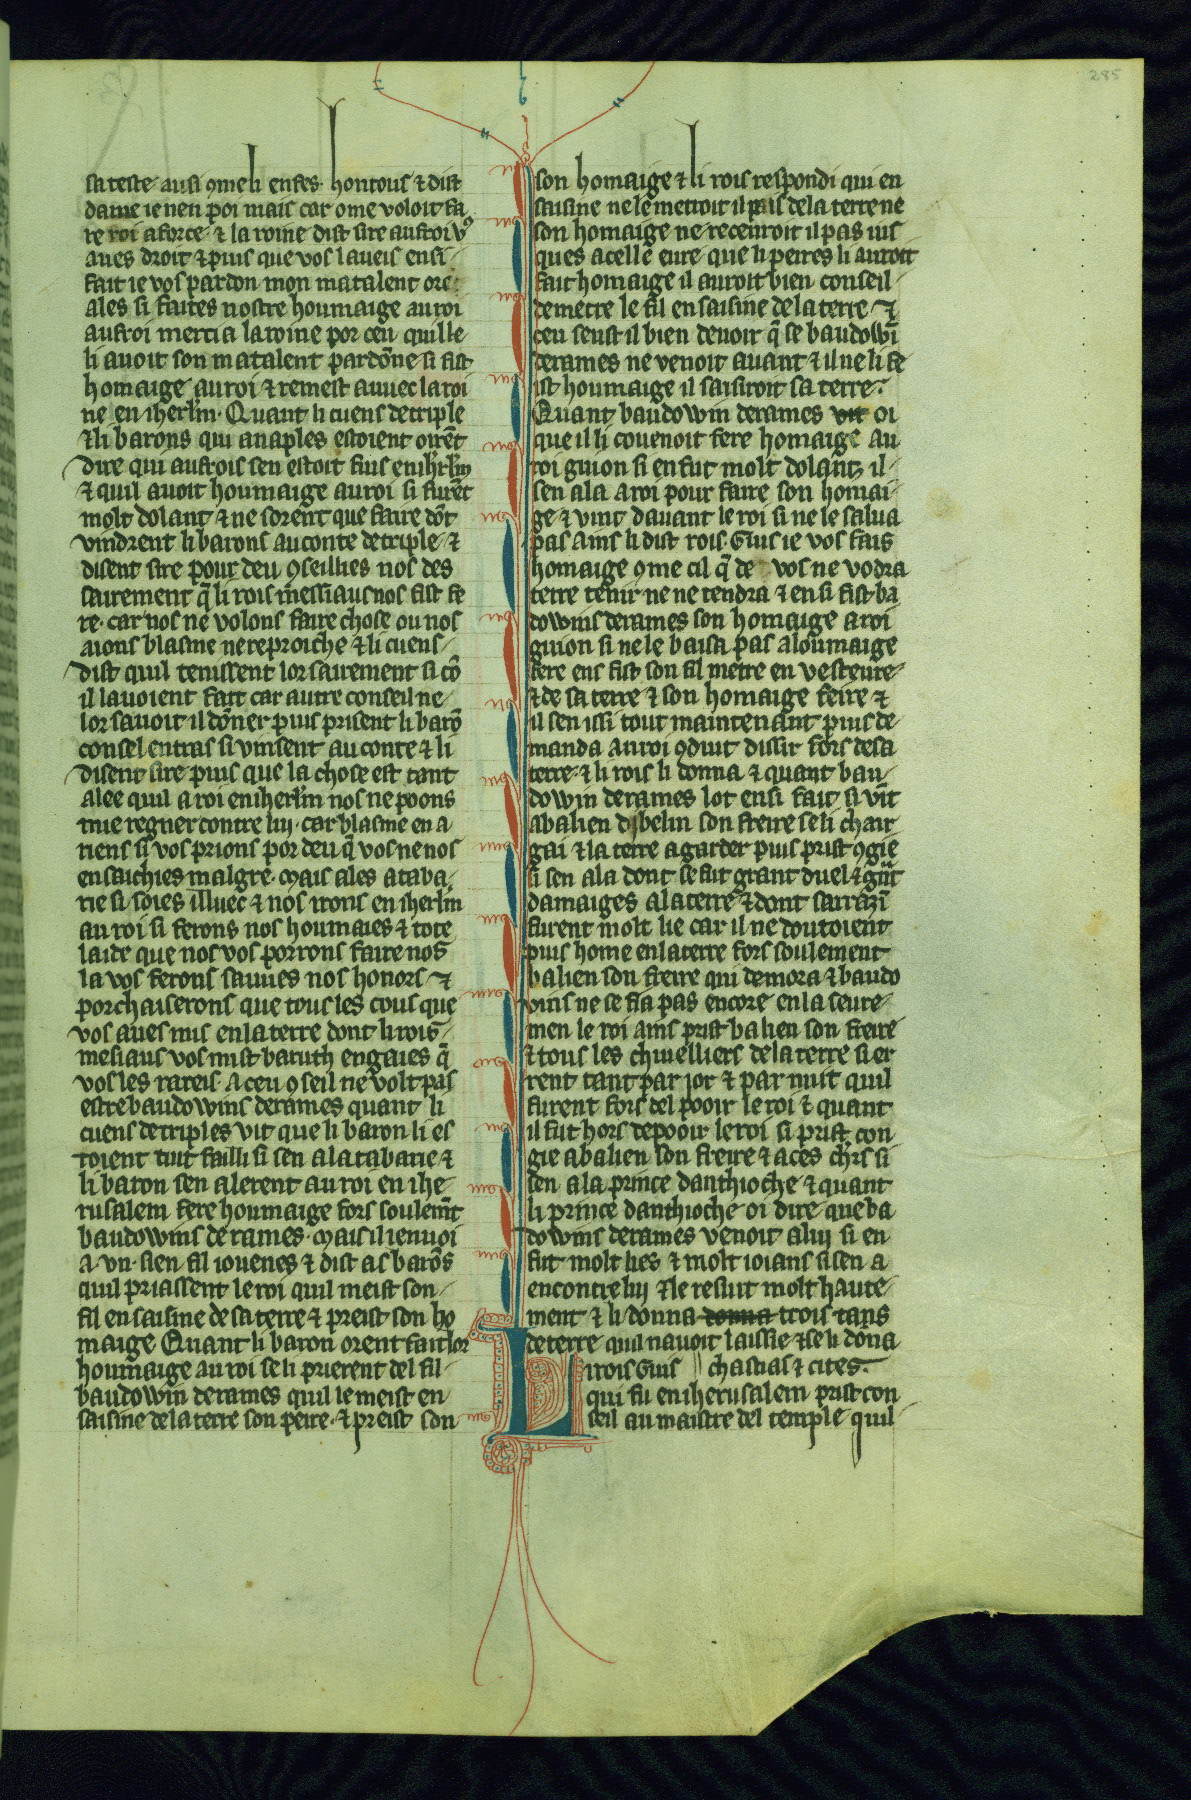 285
sa teste ausi ꝯme li enfes hontous ⁊ dist
dame ie nen poi mais car ome voloit fa
re roi a force ⁊ la roine dist sire aufroi vꝰ
aues droit ⁊ puis que vos laueis ensi
fait ie vos pardon mon matalent ore
ales si faites nostre houmaige au roi
aufroi mercia la roine por ceu quille
li auoit son matalent pardōne si fist
homaige au roi ⁊ remest auuec la roi
ne en iherlm̄. Quant li cuens de triple
⁊ li barons qui a naples estoient oirēt
dire qui aufrois sen estoit fuis en ihrl̄m
⁊ quil auoit houmaige au roi si furēt
molt dolant ⁊ ne sorent que faire dōt
vindrent li barons au conte de triple ⁊
disent sire pour deu ꝯseillies nos des
sairement q̄ li rois mēssiaus nos fist fe
re. car nos ne volons faire chose ou nos
aions blasme ne reproiche ⁊ li cuens
dist quil tenissent lor sairement si cō
il lauoient fait car autre conseil ne
lor sauoit il dōner puis prisent li barō
consel entras si vinsent au conte ⁊ li
disent sire puis que la chose est tant
alee quil a roi en iherlm̄ nos ne poons
mie regner contre lui. car blasme en a
riens si vos prions por deu q̄ vos ne nos
ensachies malgre. Mais ales a taba
rie si soies illuec ⁊ nos irons en iherlm̄
au roi si ferons nos houmaies ⁊ tote
laide que nos vos porrons faire nos
la vos ferons sauues nos honors ⁊
porchaiserons que tous les cous que
vos aues mis en la terre dont li rois
mesiaus vos mist baruth en gaies q̄
vos les rareis. A ceu ꝯseil ne volt pas
estre baudowins de rames quant li
cuens de triples vit que li baron li es
toient tuit failli si sen ala tabarie ⁊
li baron sen alerent au roi en ihe
rusalem fere houmaige fors soulemt̄
baudowins de rames. Mais il i enuoi
a vn sien fil iouenes ⁊ dist as barōs
quil priassent le roi quil meist son
fil en saisine de sa terre ⁊ preist son ho
maige Quant li baron orent fait lor
houmaige au roi se li prierent del fil
baudowin de rames quil le meist en
saisine de la terre son peire. ⁊ preist son
son homaige ⁊ li rois respondi qui en
saisine ne le metroit il pas de la terre ne
son homaige ne receuroit il pas ius
ques a celle eure que li peires li auroit
fait homaige il auroit bien conseil
de metre le fil en saisine de la terre ⁊
ceu seust il bien de uoir q̄ se baudowī
de rames ne venoit auant ⁊ il ne li fe
ist houmaige il saisiroit sa terre.
Quant baudowin de rames vit oi
que il li couenoit fere homaige au
roi guion si en fut molt dolant. il
sen ala a roi pour faire son homai
ge ⁊ vint dauant le roi si ne le salua
pas Ains li dist rois Guis ie vos fais
homaige ꝯme cil q̄ de vos ne vodra
terre tenir ne ne tendra ⁊ ensi fist ba
dowins de rames son homaige a roi
guion si ne le baisa pas a loumaige
fere ens fist son fil metre en vesteure
⁊ de sa terre ⁊ son homaige feire ⁊
il sen issi tout maintenant puis de
manda au roi ꝯduit dissir fors de sa
terre ⁊ li rois li donna ⁊ quant bau
dowin de rames lot ensi fait si vīt
a balien dibelin son freire se li chair
gai ⁊ la terre a garder puis prist ꝯgie
si sen ala dont se fut grant duel ⁊ grāt
damaiges a la terre ⁊ dont sarrazī
furent molt lie car il ne doutoient
puis home en la terre fors soulement
balien son freire qui demora ⁊ baudo
wins ne se fia pas encore en la seure
men le roi ains prist balien son freire
⁊ tous les chiuelliers de la terre si er
rent tant par ior ⁊ par nuit quil
furent fors del pooir le roi ⁊ quant
il fut hors de pooir le roi si prist con
gie a balien son freire ⁊ a ces chrs̄ si
sen ala prince danthioche ⁊ quant
li prince danthioche oi dire que ba
dowins de rames venoit a lui si en
fut molt lies ⁊ molt ioians si sen a
encontre lui ⁊ le resiut molt haute
ment ⁊ li donna donna trois tans
de terre quil nauoit laissie ⁊ se li dōna
chastias ⁊ cites.
Li rois Guis
qui fu en iherusalem prist con
seil au maistre del temple quil